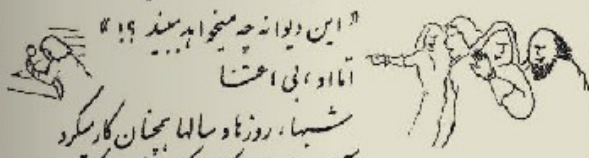 « این دیوانه چه میخواهد ببیند ؟! »
امّا او ، بی اعتنا
شبها ، روزها و سالها همچنان کار میکرد